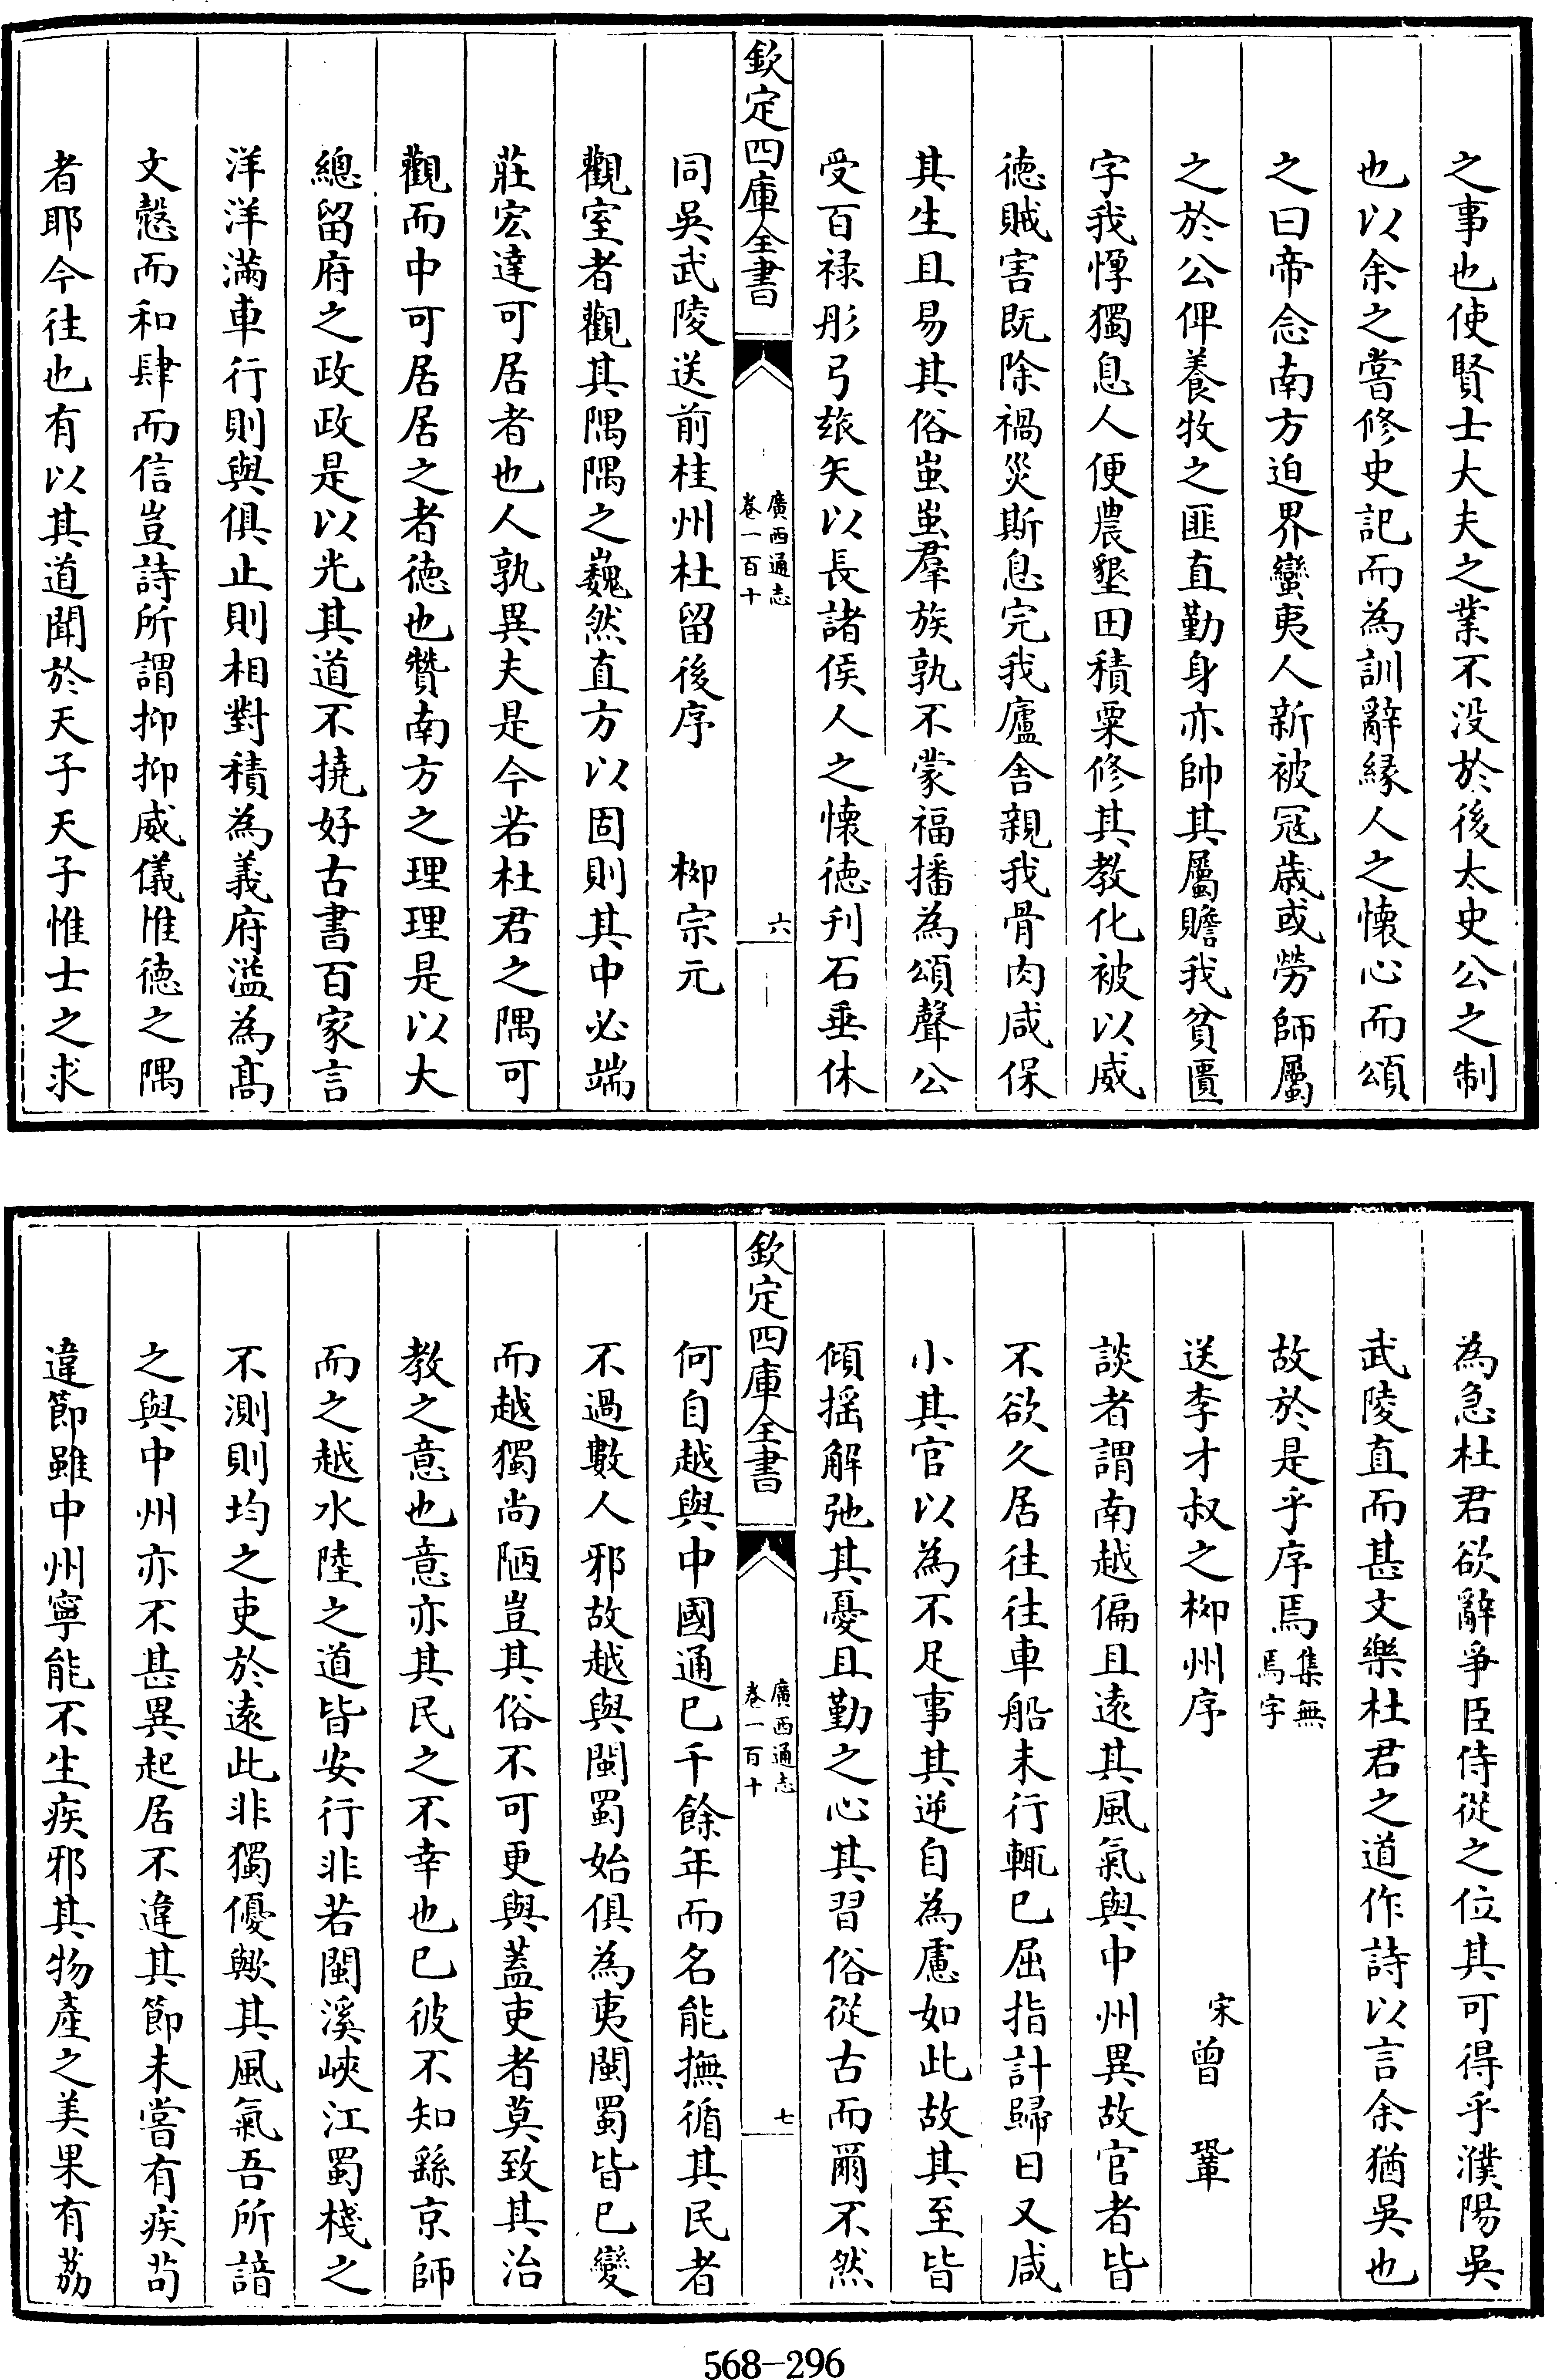 之事也使賢士大夫之業不没於後太史公之制
也以余之嘗修史記而為訓辭緣人之懷心而頌
之曰帝念南方迫界蠻夷人新被冦歳或勞師屬
之於公俾養牧之匪直勤身亦帥其屬贍我貧匱
字我惸獨息人便農墾田積粟修其教化被以威
德賊害既除禍災斯息完我廬舍親我骨肉咸保
其生且易其俗蚩蚩羣族孰不蒙福播為頌聲公
受百禄彤弓玈矢以長諸侯人之懷德刋石垂休
欽定四庫全書
廣西通志
卷一百十
六
同吳武陵送前桂州杜留後序 柳宗元
觀室者觀其隅隅之巍然直方以固則其中必端
莊宏達可居者也人孰異夫是今若杜君之隅可
觀而中可居居之者德也贊南方之理理是以大
總留府之政政是以光其道不撓好古書百家言
洋洋滿車行則與俱止則相對積為義府溢為髙
文慤而和肆而信豈詩所謂抑抑威儀惟德之隅
者耶今往也有以其道聞於天子天子惟士之求
為急杜君欲辭爭臣侍從之位其可得乎濮陽吳
武陵直而甚文樂杜君之道作詩以言余猶吳也
故於是乎序焉集無焉字
送李才叔之柳州序 宋曾鞏
談者謂南越偏且遠其風氣與中州異故官者皆
不欲久居往往車船未行輒已屈指計歸日又咸
小其官以為不足事其逆自為慮如此故其至皆
傾揺解弛其憂且勤之心其習俗從古而爾不然
欽定四庫全書
廣西通志
卷一百十
七
何自越與中國通已千餘年而名能撫循其民者
不過數人邪故越與閩蜀始俱為夷閩蜀皆已變
而越獨尚陋豈其俗不可更與蓋吏者莫致其治
教之意也意亦其民之不幸也已彼不知繇京師
而之越水陸之道皆安行非若閩溪峽江蜀棧之
不測則均之吏於遠此非獨優歟其風氣吾所諳
之與中州亦不甚異起居不違其節未嘗有疾苟
違節雖中州寧能不生疾邪其物產之美果有荔
568-296